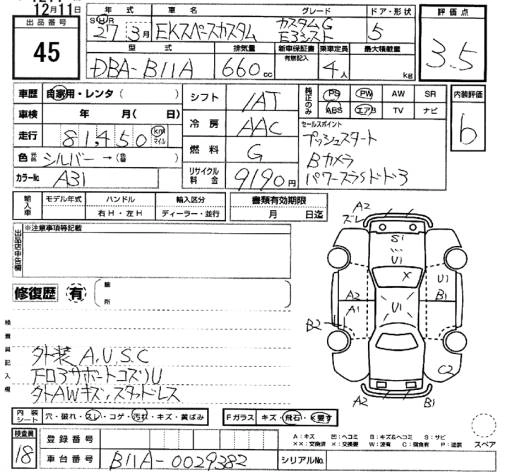 12月11日
出品番号
45
年式 車名 グレード ドア・形状
SHR 27年3月 EKスペースカスタム カスタムG E3シント 5
型式 排気量 新車保証書 有無記入 乗車定員 最大積載量
DBA-B11A 660cc 4人 kg
評価点
3.5
車歴 自家用・レンタ( )
車検 年 月( 日)
走行 81,450 km マイル
色 シルバー→( )
カラーNo. A31
シフト IAT
冷房 AAC
燃料 G
リサイクル料金 9190円
純正のみ PS PW AW SR
ABS エアB TV ナビ
セールスポイント
プッシュスタート
Bカメラ
パワースライドドア
内装評価
b
輸入車 モデル年式 ハンドル 輸入区分 書類有効期限
右H・左H ディーラー・並行 月 日迄
出品店申告欄 ※注意事項等記載
修復歴 有
検査員記入欄
外装A,U,S,C
外AWキズ,スタッドレス
A2
ズレ
S1
U1
X
U1
A2
B1
A1
U1
B2
C2
A2
B1
内装シート 穴・破れ・スレ・コゲ・汚れ・キズ・黄ばみ Fガラス キズ・飛石・X要す
A:キズ 凹:ヘコミ B:キズ&ヘコミ S:サビ
XX:交換済 X:交換要 W:波有 C:腐食有 P:塗訳
スペア
検査員
18
登録番号
車台番号 B11A-0029382 シリアルNo.